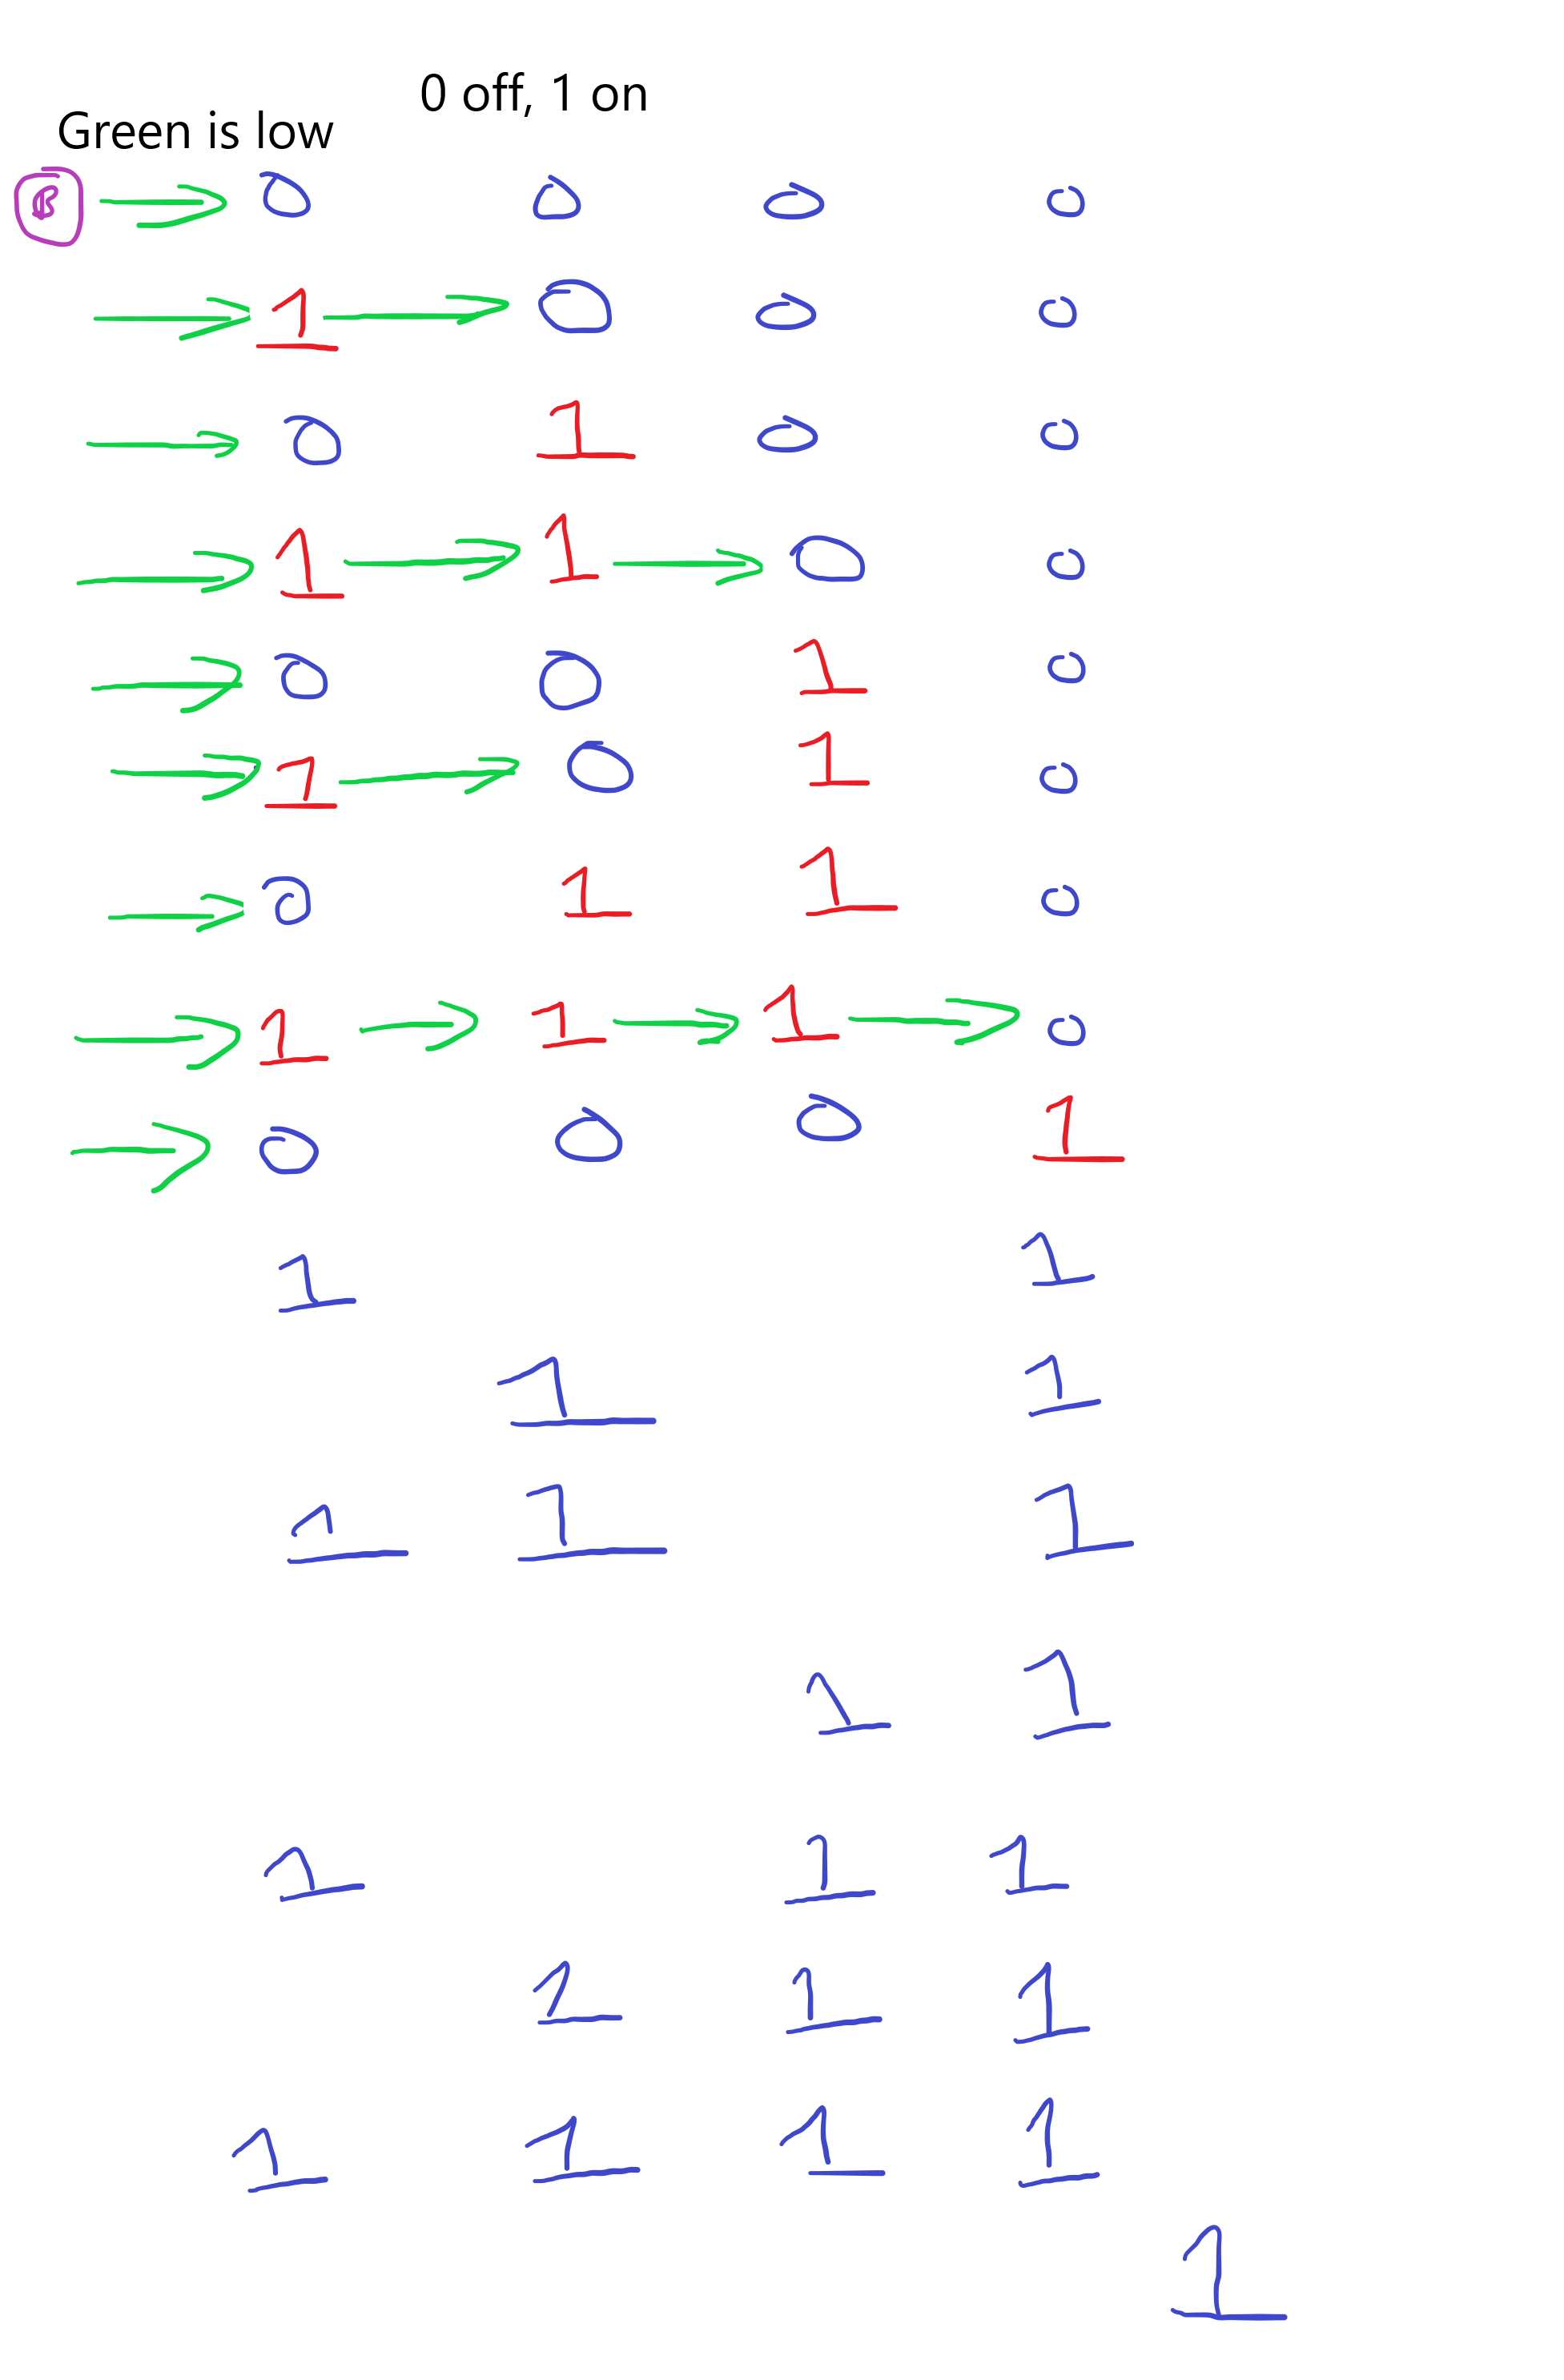 0 off, 1 on
Green is low
0 0 0 0
1 0 0 0
0 1 0 0
1 1 0 0
0 0 1 0
1 0 1 0
0 1 1 0
1 1 1 0
0 0 0 1
1 1
1 1
1 1 1
1 1
1 1 1
1 1 1
1 1 1 1
1